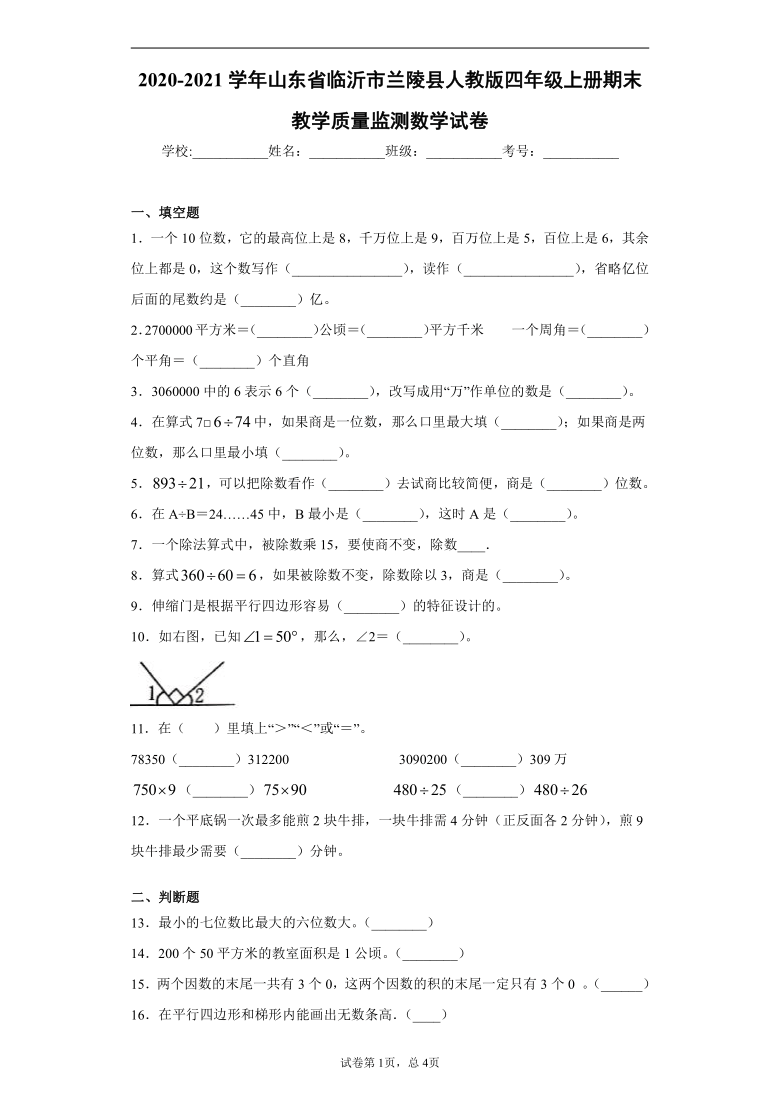 2020-2021 学年山东省临沂市兰陵县人教版四年级上册期末
教学质量监测数学试卷
学校:___________姓名：___________班级：___________考号：___________
一、填空题
1．一个 10 位数，它的最高位上是 8，千万位上是 9，百万位上是 5，百位上是 6，其余
位上都是 0，这个数写作（________________），读作（________________），省略亿位
后面的尾数约是（________）亿。
2．2700000 平方米＝（________）公顷＝（________）平方千米  一个周角＝（________）
个平角＝（________）个直角
3．3060000 中的 6 表示 6 个（________），改写成用“万”作单位的数是（________）。
4．在算式 7□6÷74 中，如果商是一位数，那么口里最大填（________）；如果商是两
位数，那么口里最小填（________）。
5．893÷21，可以把除数看作（________）去试商比较简便，商是（________）位数。
6．在 A÷B＝24……45 中，B 最小是（________），这时 A 是（________）。
7．一个除法算式中，被除数乘 15，要使商不变，除数____．
8．算式360÷60＝6，如果被除数不变，除数除以 3，商是（________）。
9．伸缩门是根据平行四边形容易（________）的特征设计的。
10．如右图，已知∠1＝50°，那么，∠2＝（________）。
1 2
11．在（  ）里填上“＞”“＜”或“＝”。
78350（________）312200 3090200（________）309 万
750×9（________）75×90 480÷25（________）480÷26
12．一个平底锅一次最多能煎 2 块牛排，一块牛排需 4 分钟（正反面各 2 分钟），煎 9
块牛排最少需要（________）分钟。
二、判断题
13．最小的七位数比最大的六位数大。（________）
14．200 个 50 平方米的教室面积是 1 公顷。（________）
15．两个因数的末尾一共有 3 个 0，这两个因数的积的末尾一定只有 3 个 0 。（______）
16．在平行四边形和梯形内能画出无数条高．（____）
试卷第 1页，总 4页